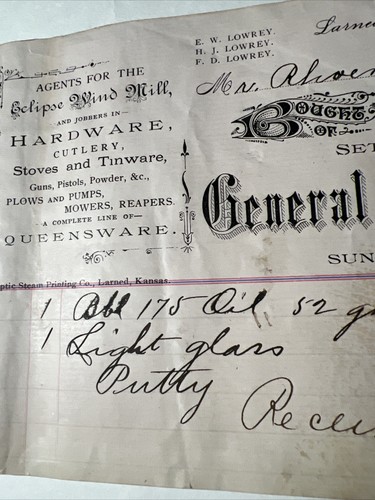 AGENTS FOR THE
Eclipse Wind Mill,
AND JOBBERS IN
HARDWARE,
CUTLERY,
Stoves and Tinware,
Guns, Pistols, Powder, &c.,
PLOWS AND PUMPS,
MOWERS, REAPERS
—A COMPLETE LINE OF—
QUEENSWARE.
ptic Steam Printing Co., Larned, Kansas.
E. W. LOWREY.
H. J. LOWREY.
F. D. LOWREY.
Larne
Mr.
BOUGHT
OF
SET
General
SUN
1 Bbl 175 Oil 52 g
1 Light glass
Putty
Recei